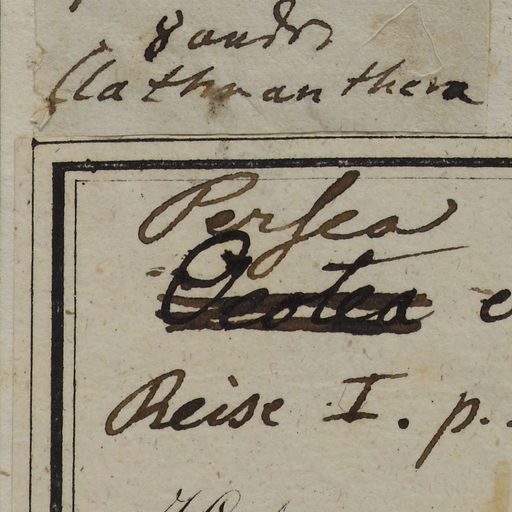 8 andr
Clathranthera
Persea
Ocotea
Reise I. p.